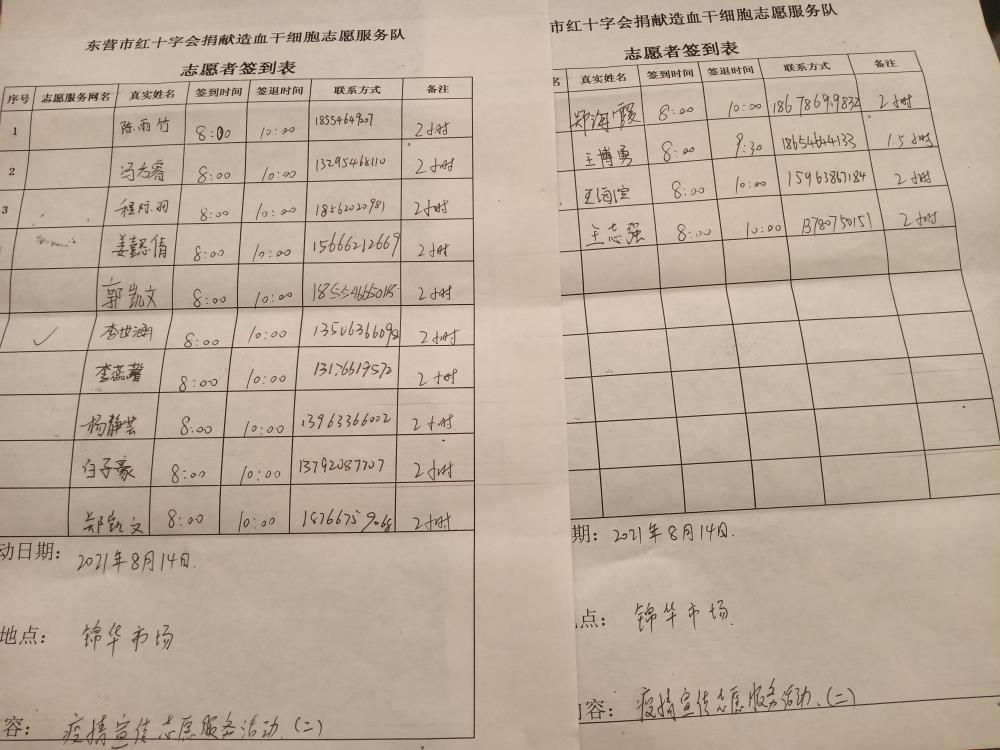 东营市红十字会捐献造血干细胞志愿服务队
志愿者签到表
序号 志愿服务网名 真实姓名 签到时间 签退时间 联系方式 备注
1 陈雨竹 8:00 10:00 2小时
2 冯方睿 8:00 10:00 13295468110 2小时
3 8:00 10:00 18562020981 2小时
姜懿倩 8:00 10:00 15666212669 2小时
郭凯文 8:00 10:00 18554665015 2小时
✓ 李世涵 8:00 10:00 13506366092 2小时
李蕊馨 8:00 10:00 13176619572 2小时
杨静芸 8:00 10:00 13963366002 2小时
白子豪 8:00 10:00 13792087707 2小时
郑凯文 8:00 10:00 18766759068 2小时
动日期: 2021年8月14日.
地点: 锦华市场
容: 疫情宣传志愿服务活动.(二)
市红十字会捐献造血干细胞志愿服务队
志愿者签到表
名 真实姓名 签到时间 签退时间 联系方式 备注
郑海霞 8:00 10:00 18678699832 2小时
王博勇 8:00 9:30 18654644133 1.5小时
8:00 10:00 15963867184 2小时
王志强 8:00 10:00 13780750151 2小时
期: 2021年8月14日.
点: 锦华市场.
容: 疫情宣传志愿服务活动.(二)